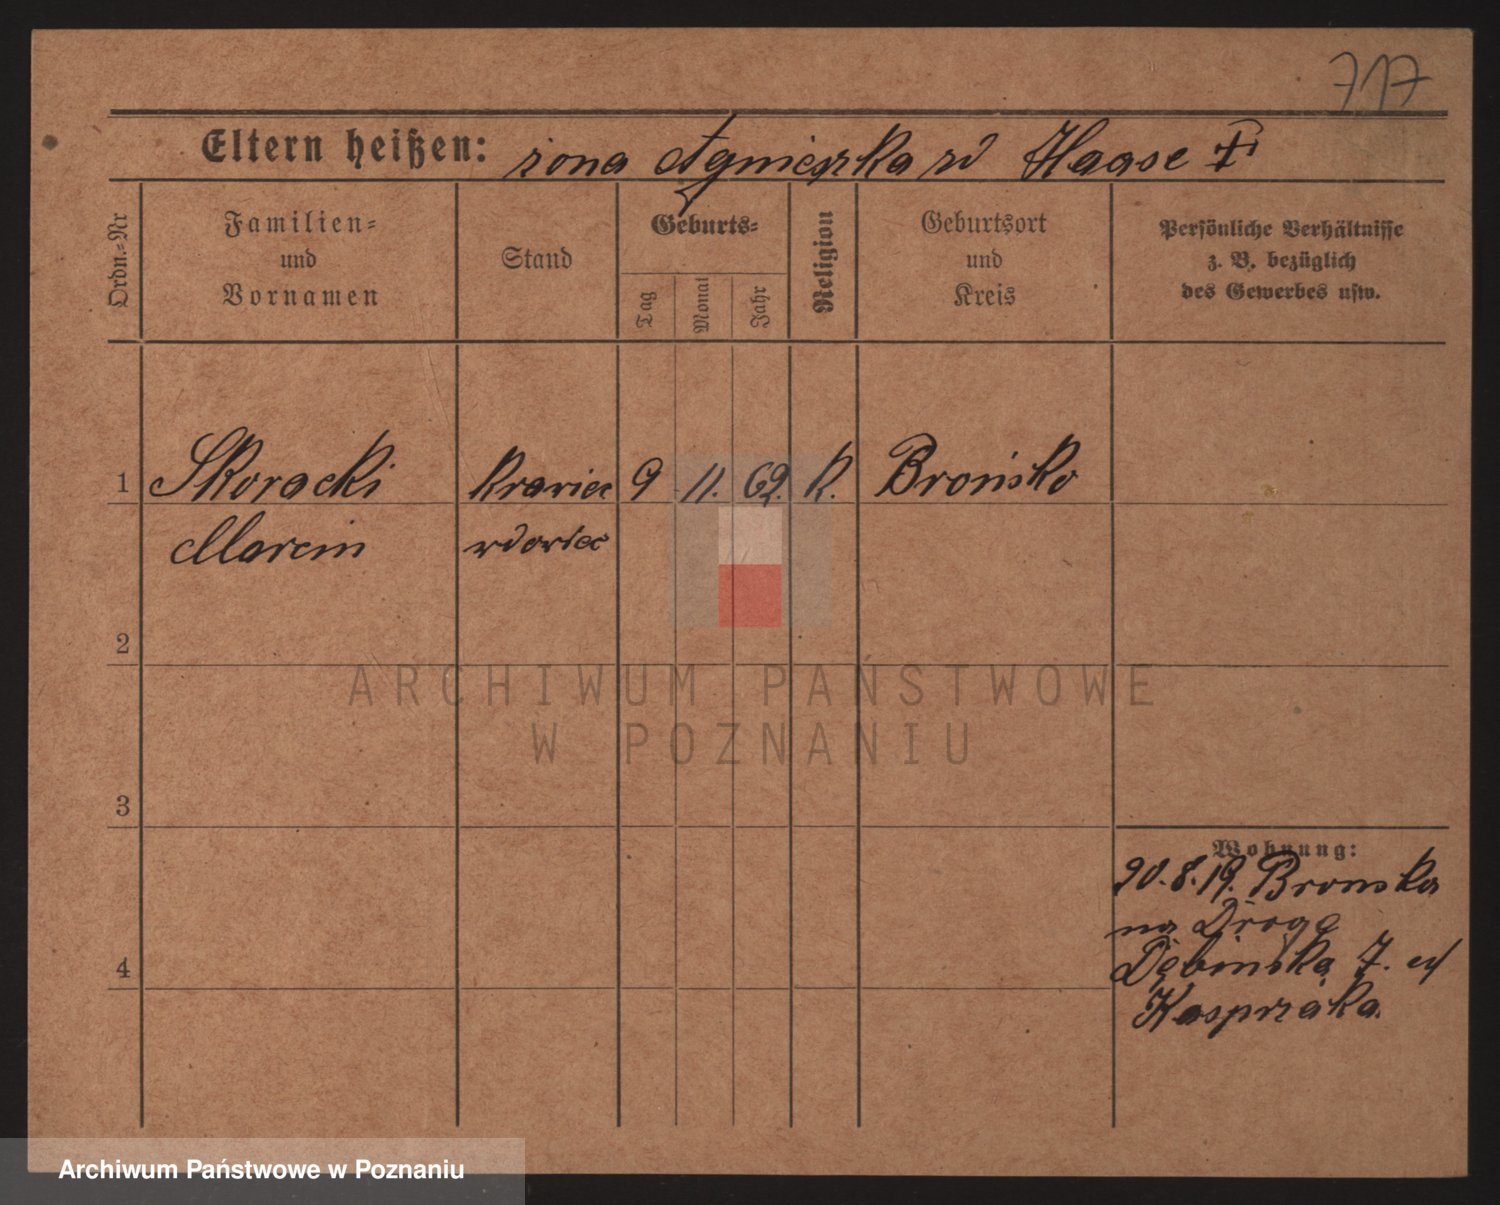 717
Eltern heißen: żona Agnieszka zd Haase †
Ordn.-Nr
Familien-
und
Vornamen
Stand
Geburts-
Tag
Monat
Jahr
Religion
Geburtsort
und
Kreis
Persönliche Verhältnisse
z. B. bezüglich
des Gewerbes usw.
1 Skoracki krawiec 9 11. 62. k. Brońsko
Marcin wdowiec
2
ARCHIWUM PAŃSTWOWE
W POZNANIU
3
Wohnung:
20.8.19. Bronska
na Droga
4 Dębinska 7. od
Kasprzaka.
Archiwum Państwowe w Poznaniu